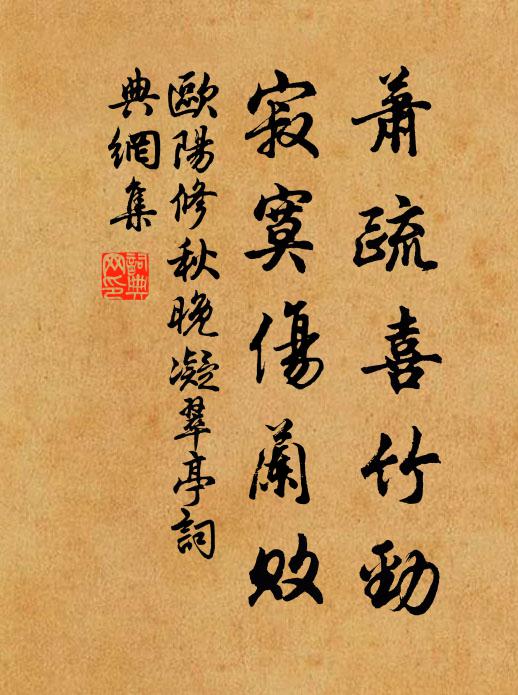 蕭疏喜竹勁
寂寞傷蘭敗
歐陽修秋晚凝翠亭詞
典網集
詞典
網印